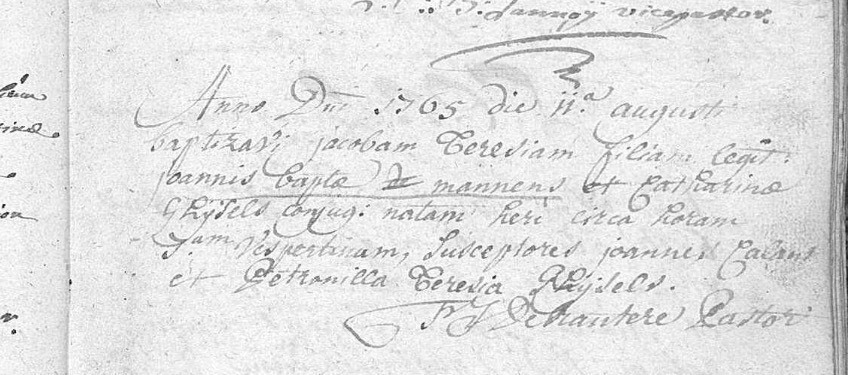 vicepastor
Anno Dni 1765 die 11.a augusti
baptizavi jacobam Teresiam filiam legit:
joannis baptæ De mannens et Catharinæ
Ghijsels conjug: natam heri circa horam
5.am Vespertinam, Susceptores joannes Calant
et Petronilla Teresia Ghijsels.
Pastor